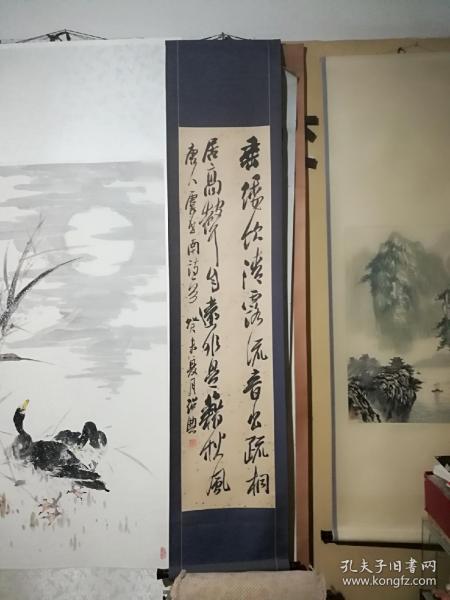 垂緌饮清露流音出疏桐
居高声自远非是藉秋风
唐人虞世南诗句 癸未夏月
孔夫子旧书网
www.kongfz.com